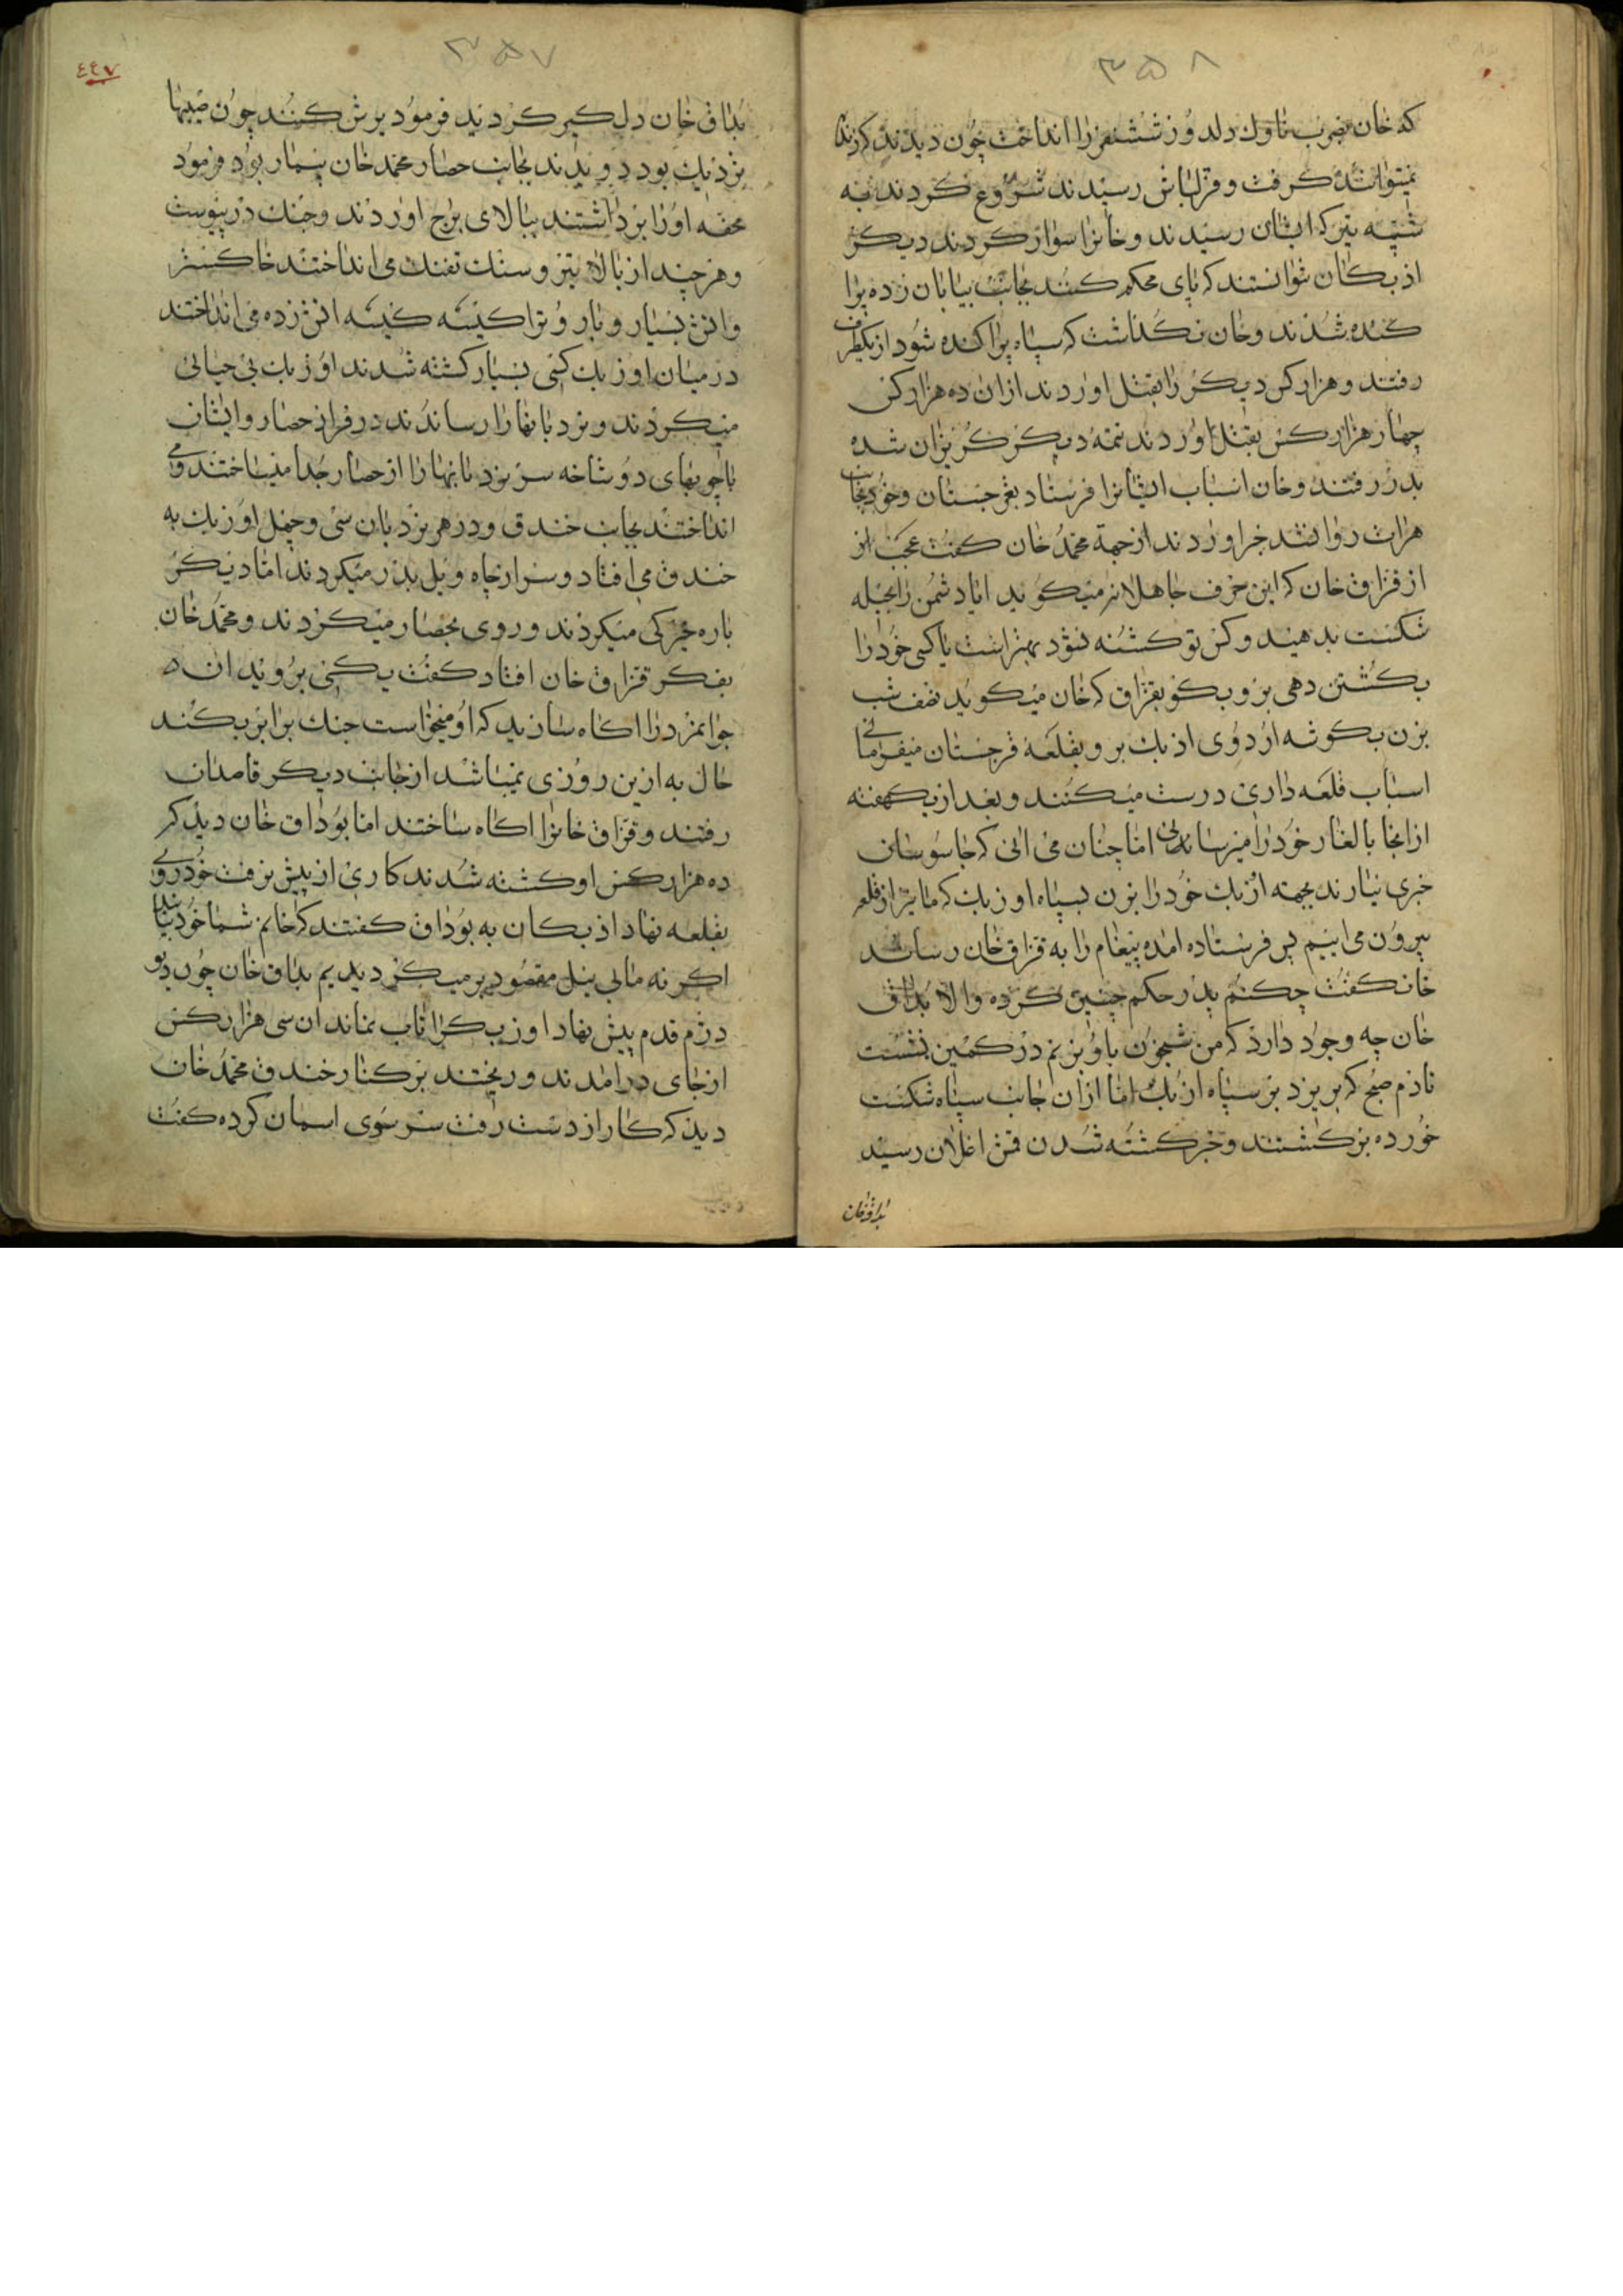 ۳۵۸
که خان بضرب ناوک دلدوز شش نفر را انداخت چون دیدند که زنده
نمیتوانند کرفت و قزلباش رسیدند شروع کردند به
شیبه تیر که ایشان رسیدند و خانرا سوار کردند دیکر
اذبکان نتوانستند که پای محکم کنند بجانب بیابان زده پرا
کنده شدند و خان نکذاشت که سپاه پراکنده شود از یکطرف
رفتند و هزار کس دیکر را بقتل اوردند از ان ده هزار کس
چهار هزار کس بقتل اوردند تتمه دیکر کریزان شده
بدر رفتند و خان اسباب ایشانرا فرستاد بغرجستان و خود بجانب
هرات روان شد خبر اوردند از جهة محمد خان کفت عجب از
از قزاق خان که این حرف جاهلانه میکوید اما دشمن را بحیله
شکست بدهید و کس تو کشته نشود بهتر است یا کسی خود را
بکشتن دهی برو بکو بقزاق که خان میکوید نصف شب
بزن بکوشه اردوی اذبک برو بقلعه غرجستان میفرمائی تا
اسباب قلعه داری درست میکنند و بعد از یکهفته
از انجا بالغار خود را میرسانی اما چنان می ائی که جاسوسان
خبری نیارند بجهته ازبک خود را بزن بسپاه اوزبک که ما نیز از قلعه
بیرون می اییم پس فرستاده امده پیغام را به قزاق خان رساند
خان کفت چکنم پدر حکم چنین کرده و الا بداق
خان چه وجود دارد که من شبخون باو بزنم در کمین نشست
تا دم صبح که بریزد بر سپاه ازبک اما از ان جانب سپاه شکست
خورده برکشتند و خبر کشته شدن قمش اغلان رسید
بداقخان
۳۵۷
٤٤٧
بداق خان دل کیر کردید فرمود یرش کنند چون صیبها
نزدیک بود دویدند بجانب حصار محمد خان بیمار بود فرمود
محفه او را برداشتند ببالای برج اوردند و جنک درپیوست
و هر چند از بالا تیر و سنک تفنک می انداختند خاکستر
و اتش بسیار و باروترا کیسه کیسه اتش زده می انداختند
در میان اوزبک کسی بسیار کشته شدند اوزبک بی حیائی
میکردند و نردبانها را رساندند در فراز حصار و ایشان
با چوبهای دو شاخه سر نردبانها را از حصار جدا میساختند و می
انداختند بجانب خندق و در هر نردبان سی و چهل اوزبک به
خندق می افتاد و سر از چاه ویل بدر میکردند اما دیکر
باره خیرکی میکردند و روی بحصار میکردند و محمد خان
بفکر قزاق خان افتاد کفت یکسی بروید ان
جوانمرد را اکاه سازید که او میخواست جنک برابر بکند
حال به ازین روزی نمیباشد از جانب دیکر قاصدان
رفتند و قزاق خانرا اکاه ساختند اما بوداق خان دید که
ده هزار کس او کشته شدند کاری از پیش نرفت خود روی
بقلعه نهاد اذبکان به بوداق کفتند که خانم شما خود میائید
اکر نه ما بی نیل مقصود برمیکردیدیم بداق خان چون دیو
دژم قدم پیش نهاد اوزبکرا تاب نماند ان سی هزار کس
از جای درامدند و ریختند بر کنار خندق محمد خان
دید که کار از دست رفت سر سوی اسمان کرده کفت